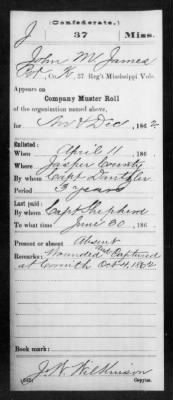 (Confederate.)
J 37 Miss.
John M James
Pvt, Co. K, 37 Reg't Mississippi Vols.
Appears on
Company Muster Roll
of the organization named above,
for Nov & Dec, 1862.
Enlisted:
When April 11, 186
Where Jasper County
By whom Capt Dantzler
Period 3 years
Last paid:
By whom Capt Shepherd
To what time June 30, 186
Present or absent Absent
Remarks: Wounded and Captured
at Corinth Oct 4, 1862
Book mark:
J. W. Wilkinson
(642) Copyist.